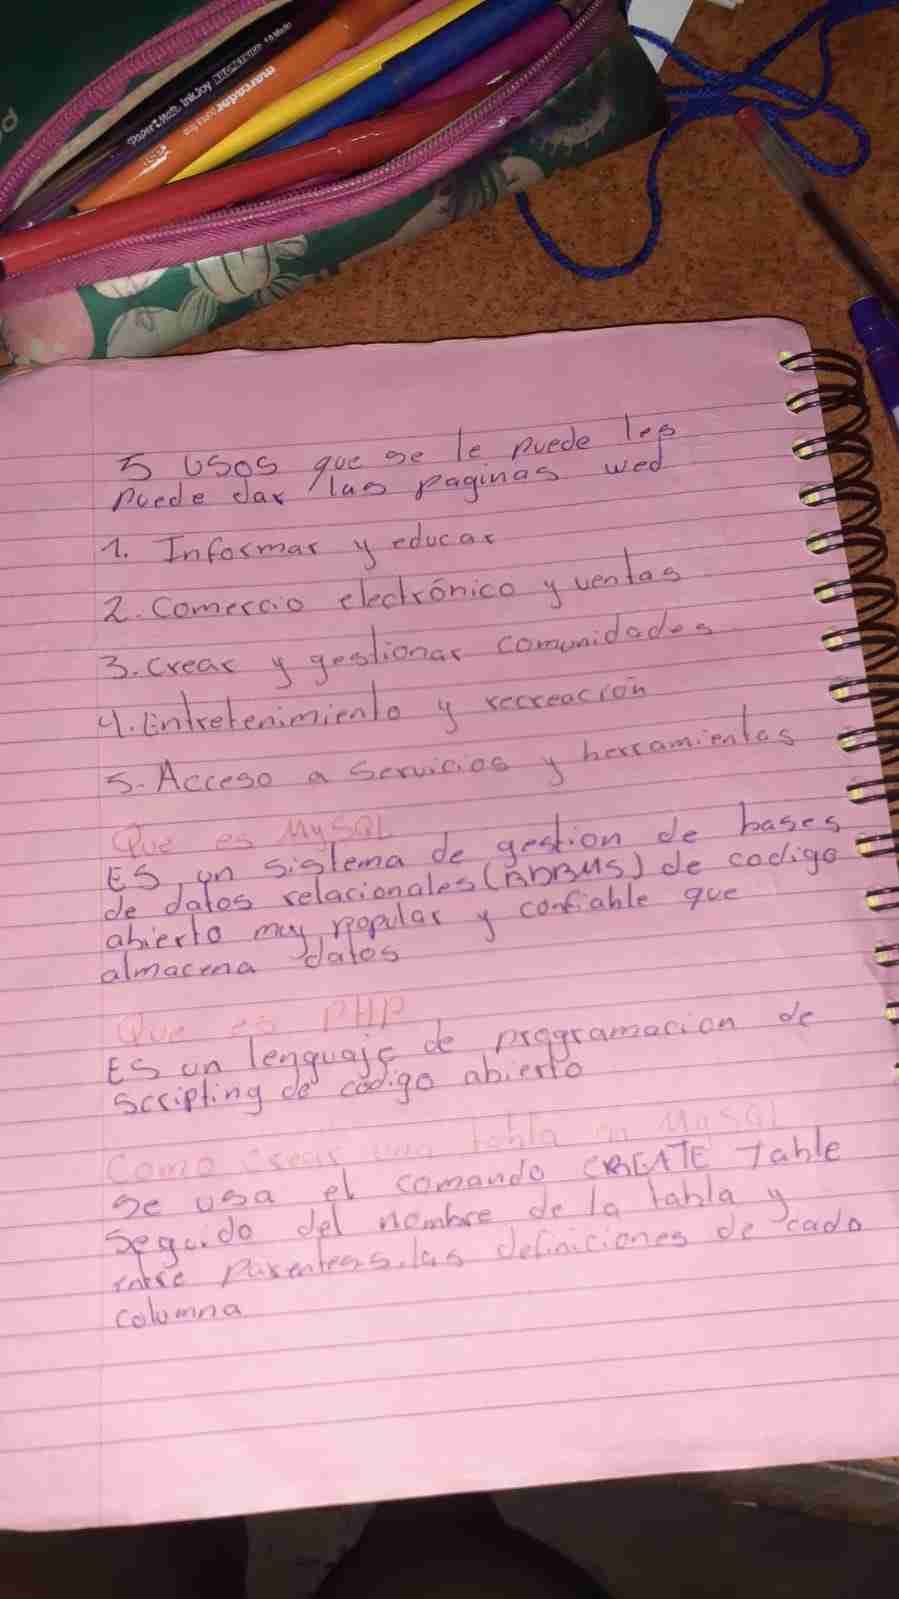 PaperMate InkJoy
marcador
5 usos que se le puede les
puede dar las paginas wed
1. Informar y educar
2. Comercio electrónico y ventas
3. Crear y gestionar comunidades
4. Entretenimiento y recreación
5. Acceso a servicios y herramientas
Que es MySQL
ES un sistema de gestion de bases
de datos relacionales (RDBMS) de codigo
abierto muy popular y confiable que
almacena datos
Que es PHP
ES un lenguaje de programacion de
scripting de codigo abierto
Como crear una tabla en MySQL
Se usa el comando CREATE Table
seguido del nombre de la tabla y
entre parentesis, las definiciones de cada
columna